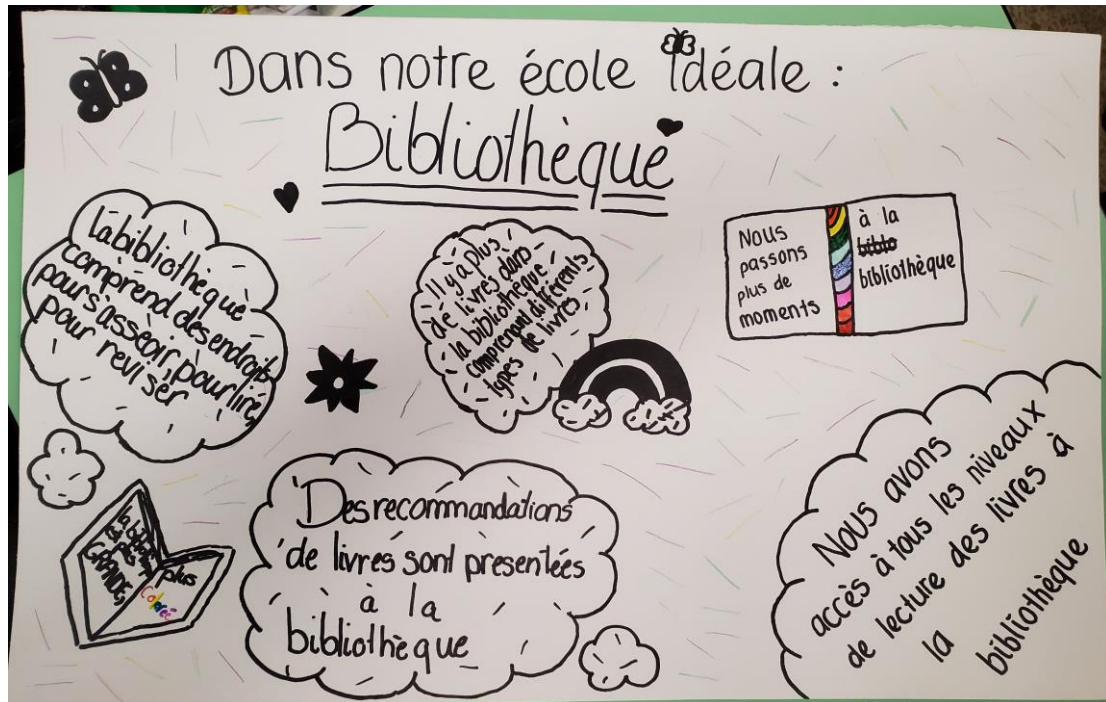 Dans notre école idéale :
Bibliothèque
La bibliothèque
comprend des endroits
pour s'asseoir, pour lire,
pour reviser
Il y a plus
de livres dans
la bibliothèque
comprenant différents
types de livres
Nous
passons
plus de
moments
à la
biblo
bibliothèque
GRANDE,
plus
Coloreé
Des recommandations
de livres sont presentées
à la
bibliothèque
Nous avons
accès à tous les niveaux
de lecture des livres à
la
bibliothèque